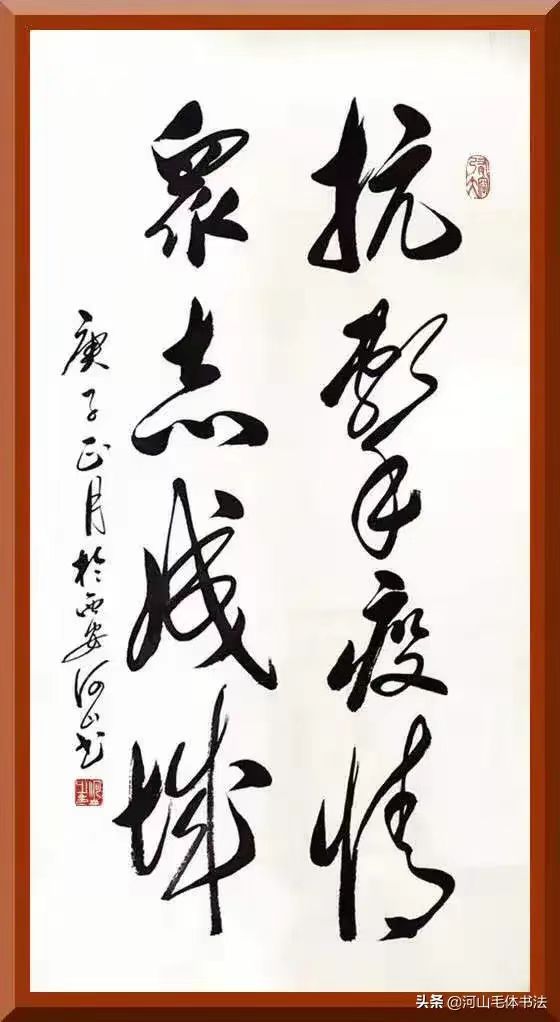 抗擊疫情
衆志成城
庚子正月於西安河山書
头条 @河山毛体书法